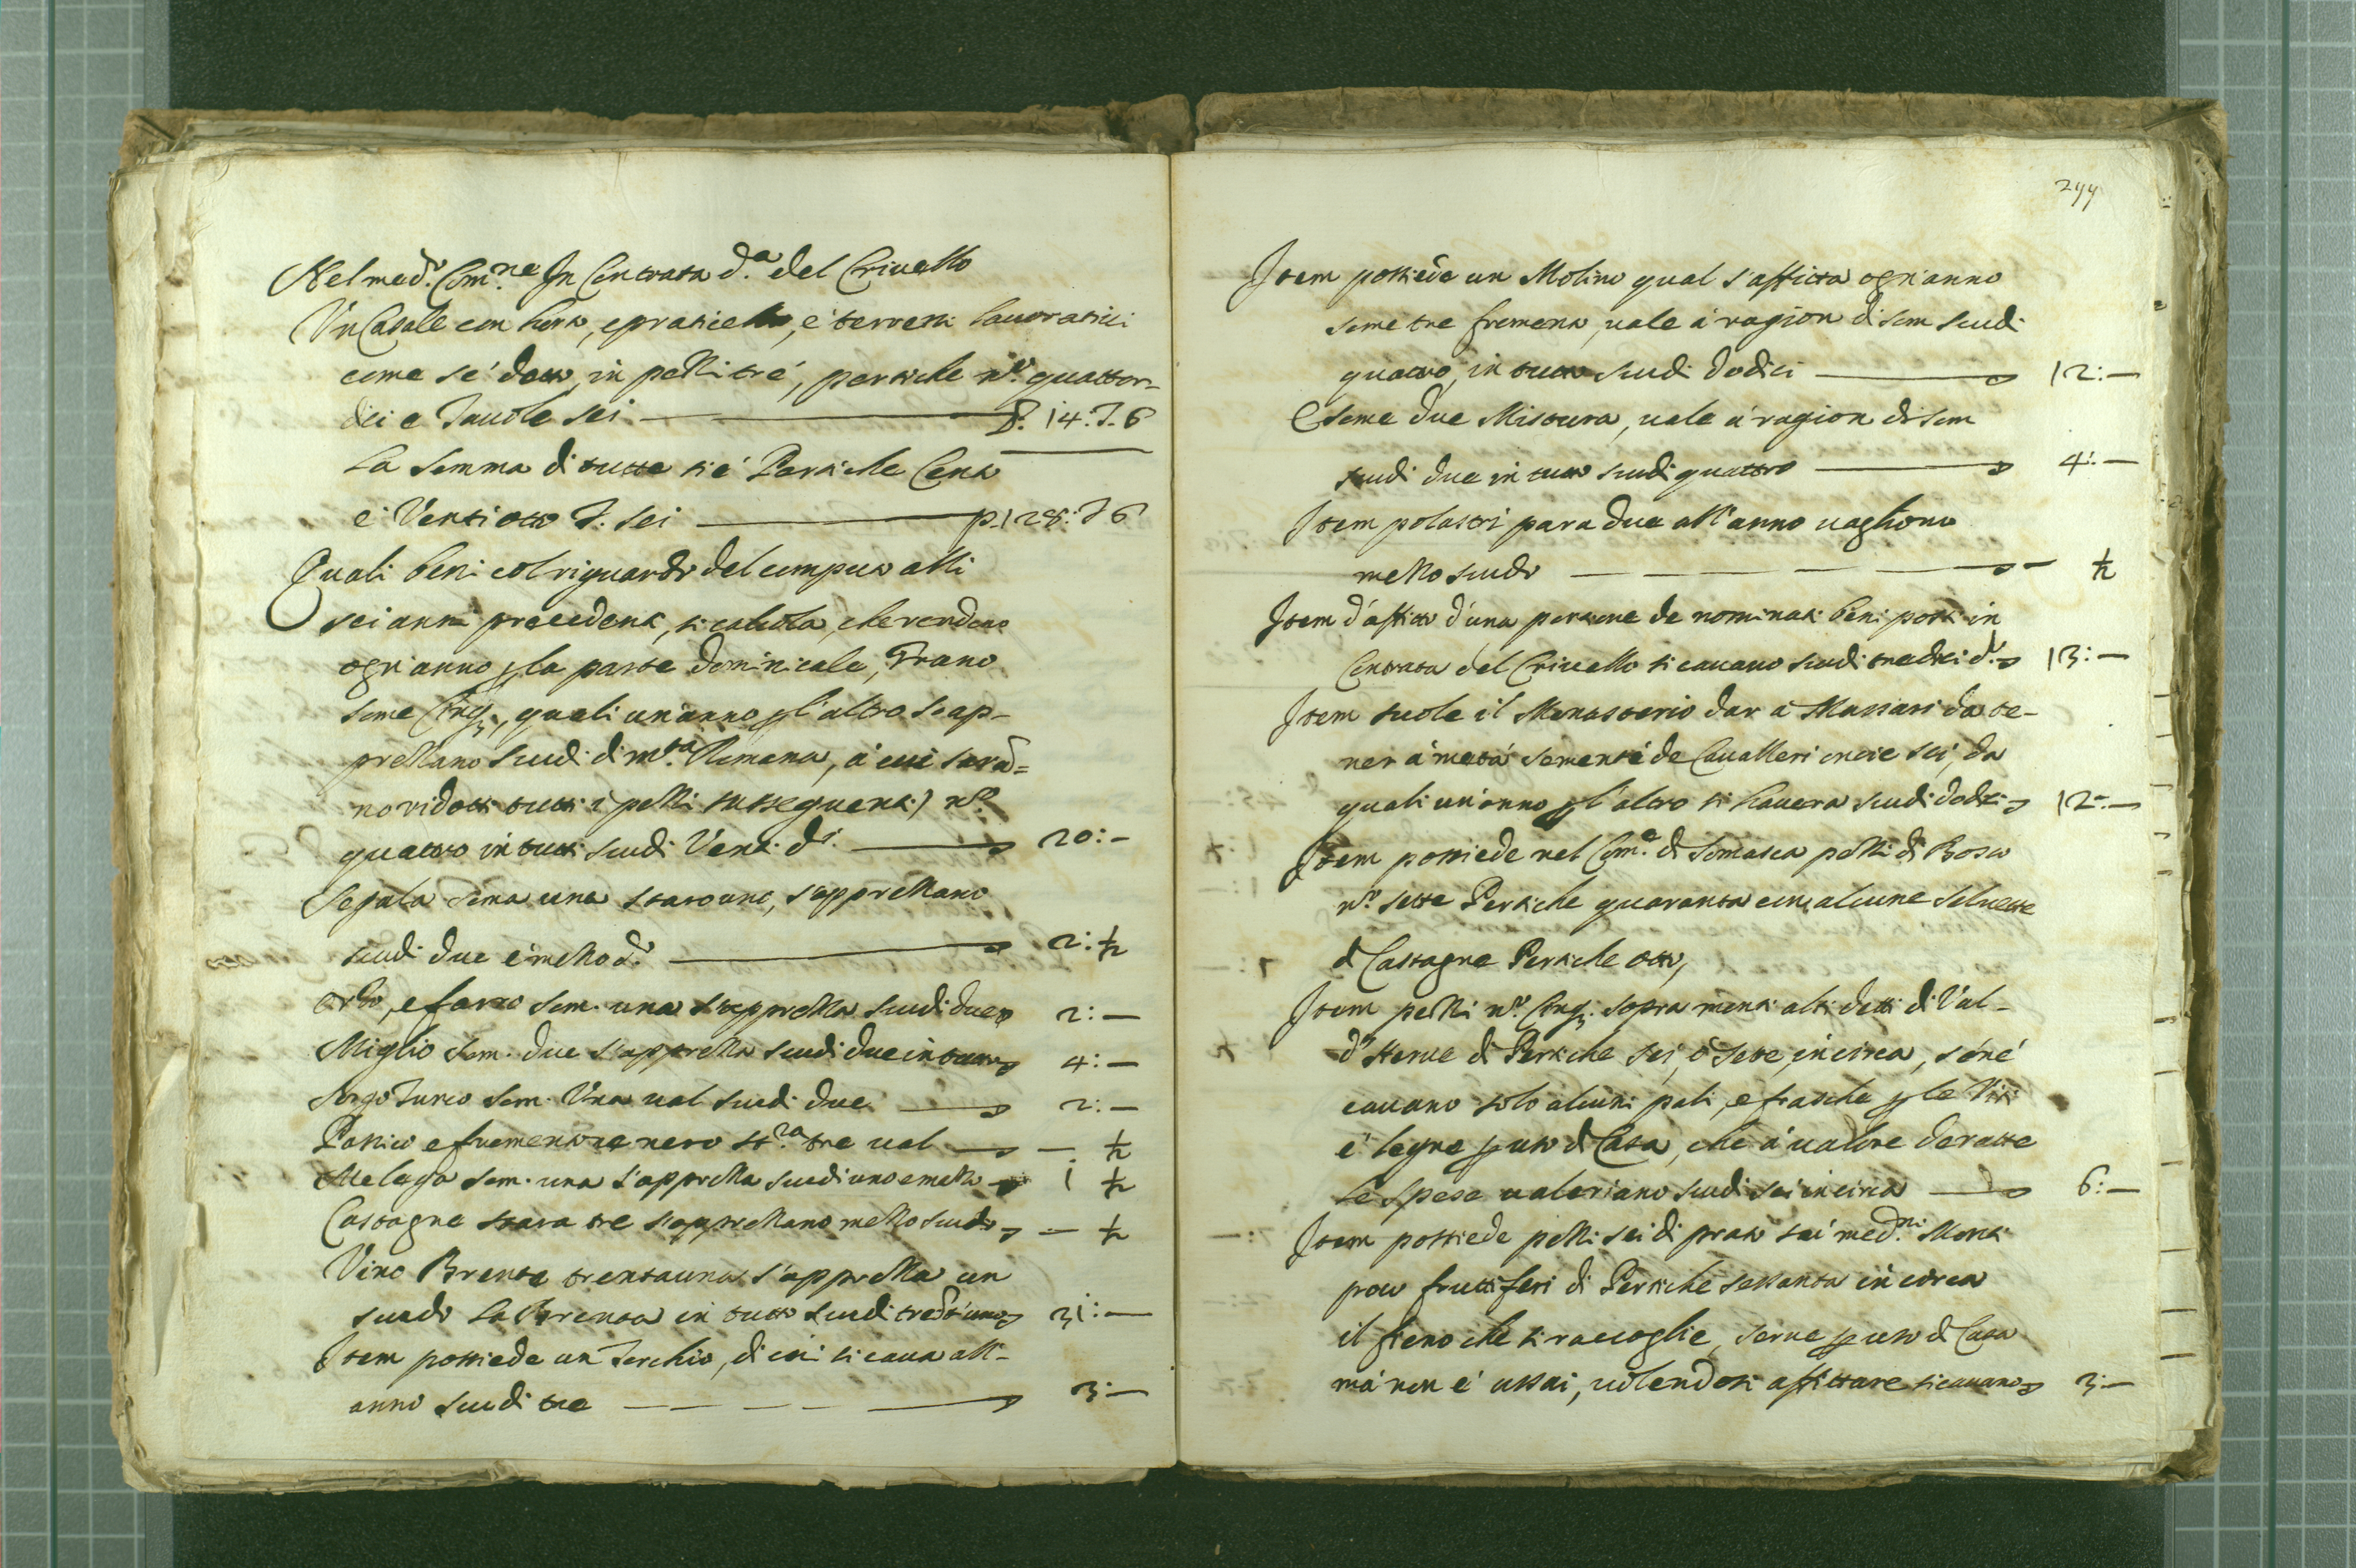 Nel med.º Com.ne In Contrata d.a del Criuello
Un Casale con horto, e praticello, e' terreni lauoratiui
come se' detto, in pezzi tré, pertiche n.º quattor-
dici e Tauole sei P. 14: T. 6
La Somma di tutte si é Pertiche Cento
e' Ventiotto T. sei p. 128: T 6
Quali beni col riguardo del computo alli
sei anni precedenti, si calcola, che rendono
ogn'anno p la parte Dominicale, Grano
some Cinq;, quali un'anno p l'altro s'ap-
prezzano scudi di m.ta Romana, á cui sara-
no ridotti tutti i pezzi susseguenti) n.º
quattro in tutti scudi Venti d.i 20: -
Segala soma una staro uno, s'apprezzano
scudi due é mezzo d.i 2: ½
Orzo, e farro som. una s'apprezza scudi due 2: —
Miglio som. due s'apprezza scudi due in tutto 4: —
Sorgo Turco som. Una val scudi due 2: —
Panico e formentone nero st.ra tre val — ½
Melega som. una s'apprezza scudi uno e mezzo 1 ½
Castagne stara tre s'apprezzano mezzo scudo — ½
Vino Brente trentauna s'apprezza un
scudo la Brenta in tutto scudi trent'uno 31: —
Item possiede un Torchio, di cui si caua all'-
anno scudi tre 3: —
299
Item possiede un Molino qual s'affitta ogn'anno
some tre formento, uale á ragion di som scudi
quattro, in tutto scudi dodici 12: —
E some due Mistura, uale á ragion di som
scudi due in tutto scudi quattro 4: —
Item polastri para due all'anno uagliono
mezzo scudo ½
Item d'affitto d'una portione de nominati beni posti in
Contrata del Criuello si cauano scudi tredici d.i 13: —
Item suole il Monasterio dar a Massari da te-
ner á metá semente de Caualleri oncie sei, da
quali un'anno p l'altro si hauera scudi dodeci 12: —
Item possiede nel Com.e di Somasca pezzi di Bosco
n.º sette Pertiche quaranta con alcune seluette
di Castagne Pertiche otto,
Item pezzi n.º Cinq; sopra monti alti detti di Val-
d'Herue di Pertiche sei, ó sette, in circa, s'oné
cauano solo alcuni pali, e frasche p le Viti
e' legne p uso di Casa, che á ualore detratte
le spese ualeriano scudi sei in circa 6: —
Item possiede pezzi sei di prato sui med.mi Monti
poco fruttiferi di Pertiche sessanta in circa
il fieno che si raccoglie, serue p uso di Casa
má non e' assai, uolendosi affittare si cauano 3: —